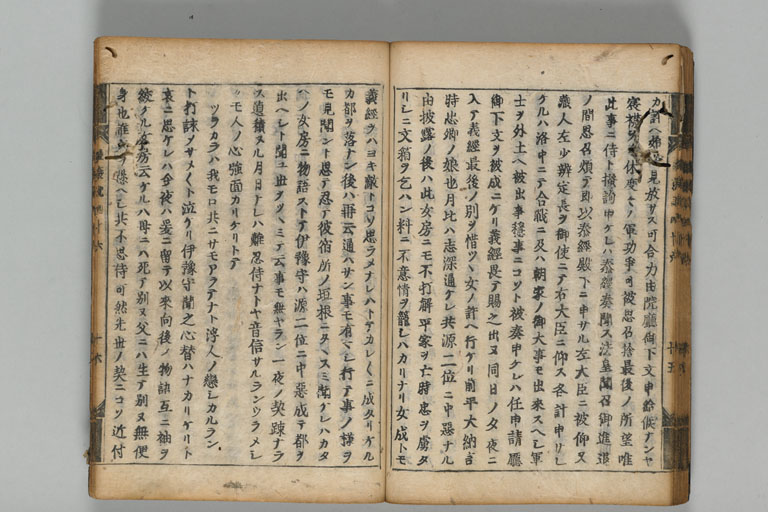 力討ハ弟見放サス可合力由院廳御下文申給候ナンヤ
寝襟ヲ休度ノ軍功爭可被思召捨最後ノ所望唯
此事ニ侍ト掻詢申ケレハ泰經奏聞ス法皇聞召御進退
ノ間思召煩テ即以泰經殿下ニ申サル左大臣ニ被仰又
蔵人左少辨定長ヲ御使ニテ右大臣ニ仰ス各計申サレ
ケルハ洛中ニテ合戰ニ及ハ朝家ノ御大事モ出来スヘシ軍
士ヲ外土ヘ被出事穏事ニコソト被奏申ケレハ任申請廳
御下文ヲ被成ニケリ義經畏テ賜之出ヌ同日ノ夕夜ニ
入テ義經最後ノ別ヲ惜ツヽ女ノ許ヘ行ケリ前平大納言
時忠卿ノ娘也月比ハ志深通ケレ共源二位ニ中惡ナル
由披露ノ後ハ此女房ニモ不打解平家ヲ亡時忠ヲ虜タ
リシニ文箱ヲ乞ハン料ニ不意情ヲ籠シハカリナリ女成トモ
義經ラハヨキ敵トコソ思ラメナレハトテカレくニ成タリケル
カ都ヲ落ナン後ハ再云通ハサン事モ有ヘシ行テ事ノ謹ヲ
モ見聞ント思テ忍テ彼宿所ノ垣根ニタヽスミ聞ケレハカタ
ヘノ女房ニ物語ストテ伊豫守ハ源二位ニ中惡成テ都ヲ
出ヘシト聞ユ世ヲツヽミテ云事モ無ヤラン一夜ノ契疎ナラ
ス通績ヌル月日ナレハ難忍侍ナトヤ音信サルランツラメシ
ツモ人ノ心強面カリケリトテ
ツラカラハ我モロ共ニサモアラテナト浮人ノ戀シカルラン
ト打詠ソサくト泣ケリ伊豫守聞之心替ハナカリケリト
哀ニ思ケレハ今夜ハ爰ニ留テ以来向後ノ物語互ニ袖ヲ
絞ケル女房云ケルハ母ニハ死テ別ヌ父ニハ生テ別ヌ無便
身也誰憐ヲ係ヘシ共不思侍可然先世ノ契ニコソ近付